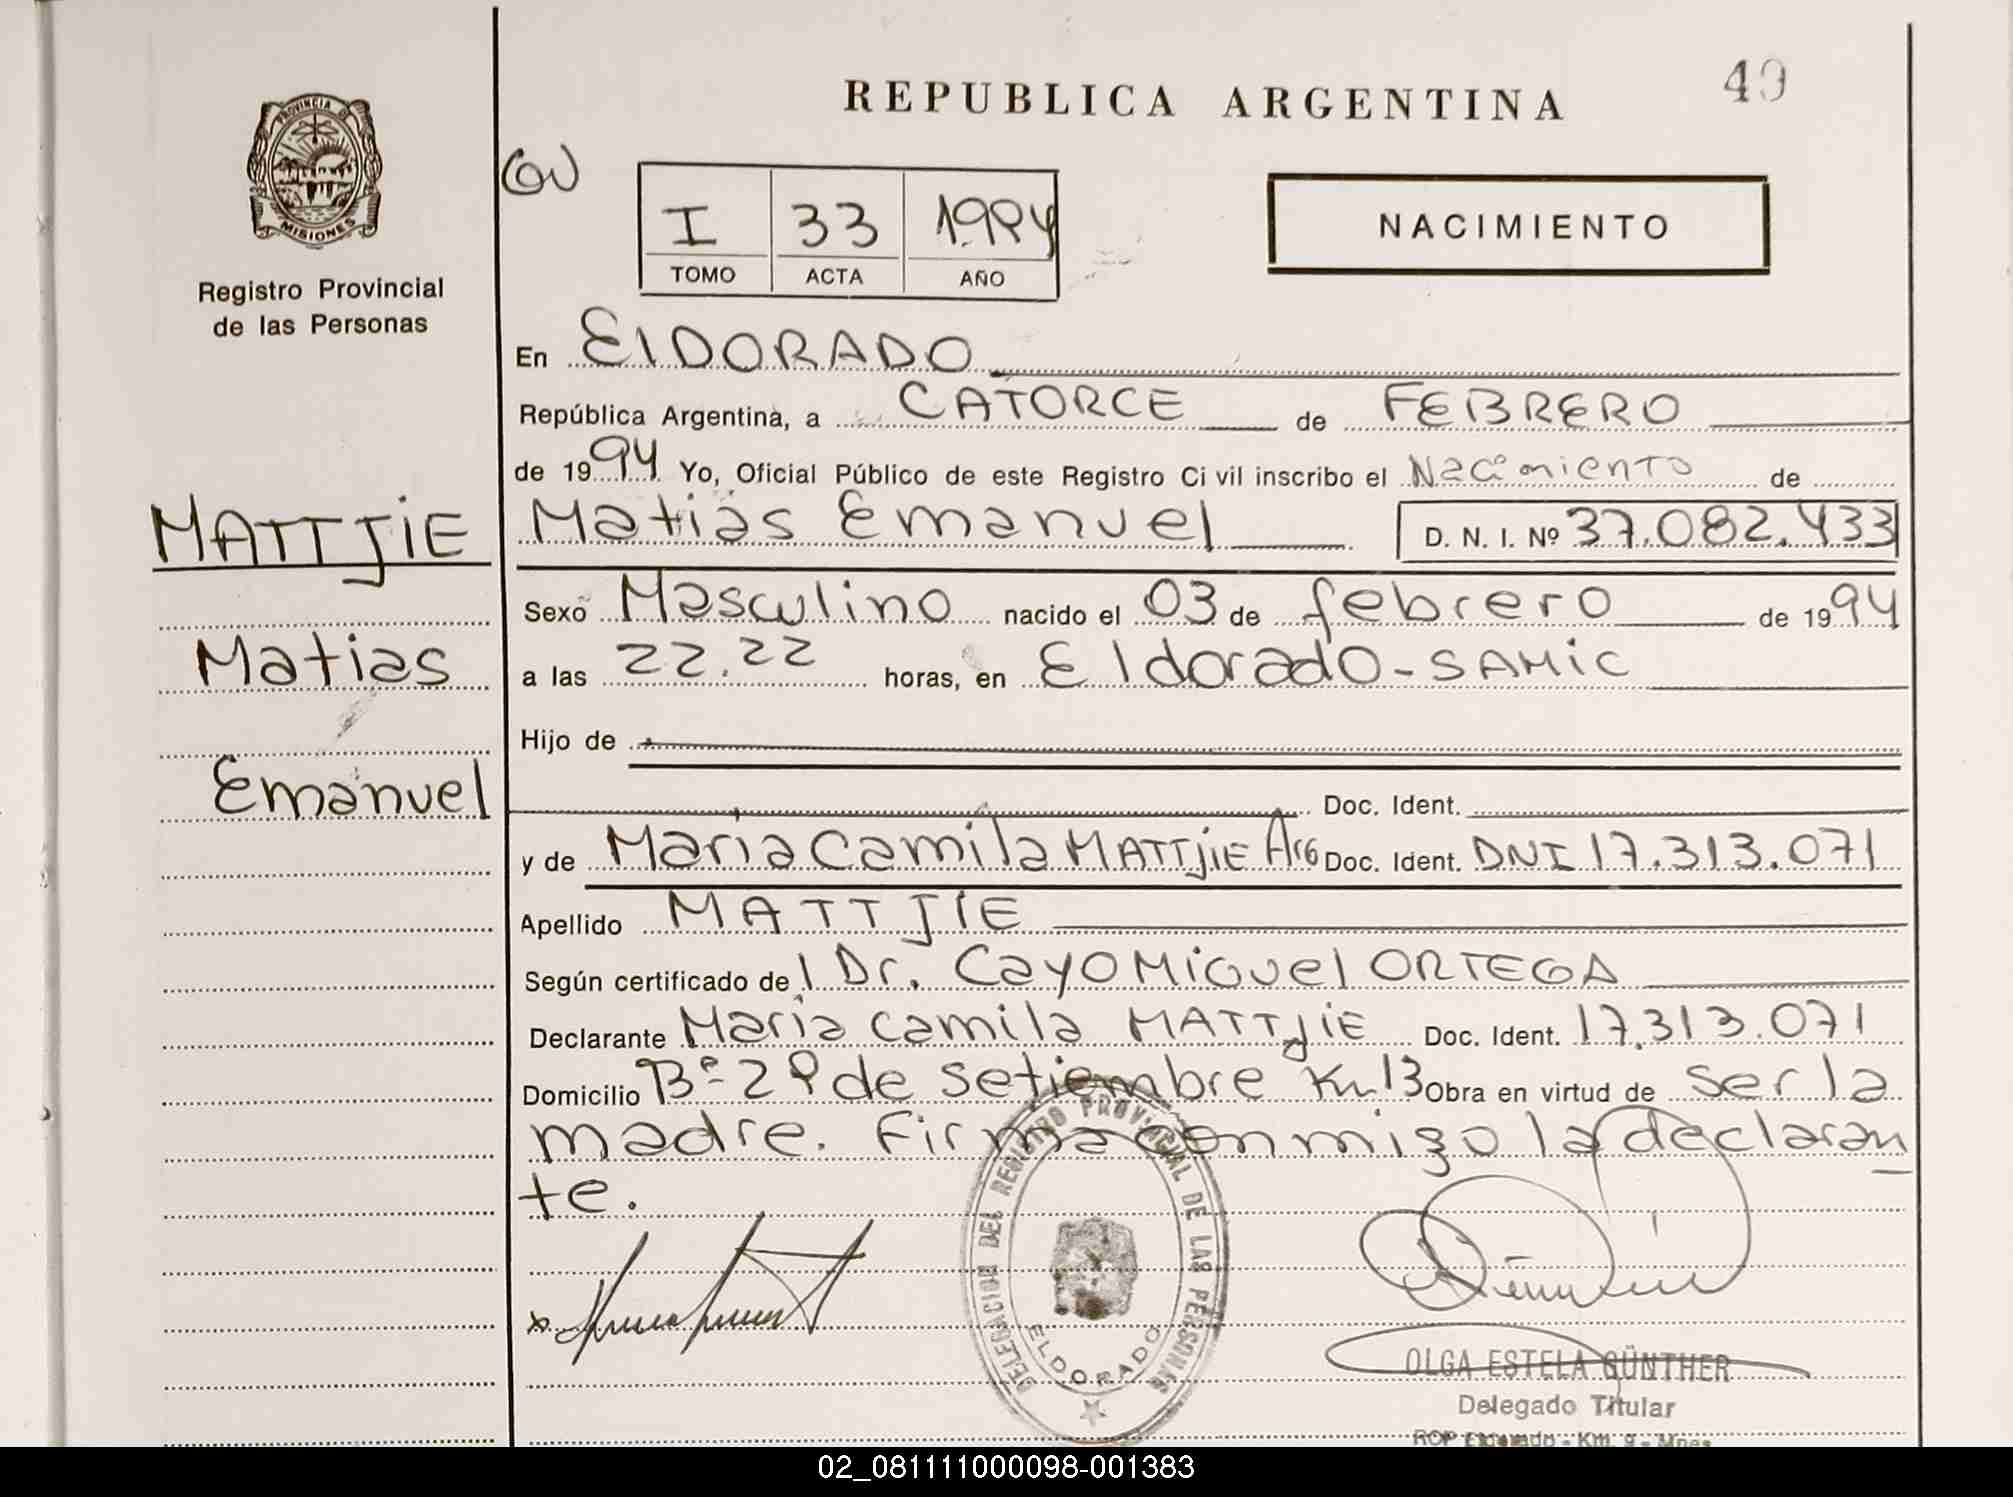 REPUBLICA ARGENTINA
49
PROVINCIA DE
MISIONES
Registro Provincial
de las Personas
I 33 1994
TOMO ACTA AÑO
NACIMIENTO
En ElDORADO
República Argentina, a CATORCE de FEBRERO
de 1994 Yo, Oficial Público de este Registro Ci vil inscribo el Nacimiento de
MATTJIE
Matias Emanuel D. N. I. Nº 37.082.433
Sexo Masculino nacido el 03 de febrero de 1994
Matias
a las 22.22 horas, en Eldorado-SAMiC
Hijo de
Emanuel
Doc. Ident.
y de Maria Camila MATTjiE Arg Doc. Ident. DNI 17.313.071
Apellido MATTJIE
Según certificado de l Dr. Cayo Miguel ORTEGA
Declarante Maria Camila MATTJiE Doc. Ident. 17.313.071
Domicilio Bº-29 de setiembre Km 13 Obra en virtud de ser la
madre. Firma conmigo la declaran
te.
DELEGACION DEL REGISTRO PROVINCIAL DE LAS PERSONAS
ELDORADO
OLGA ESTELA GÜNTHER
Delegado Titular
RPP Eldorado - Km. 9 - Mnes.
02_081111000098-001383